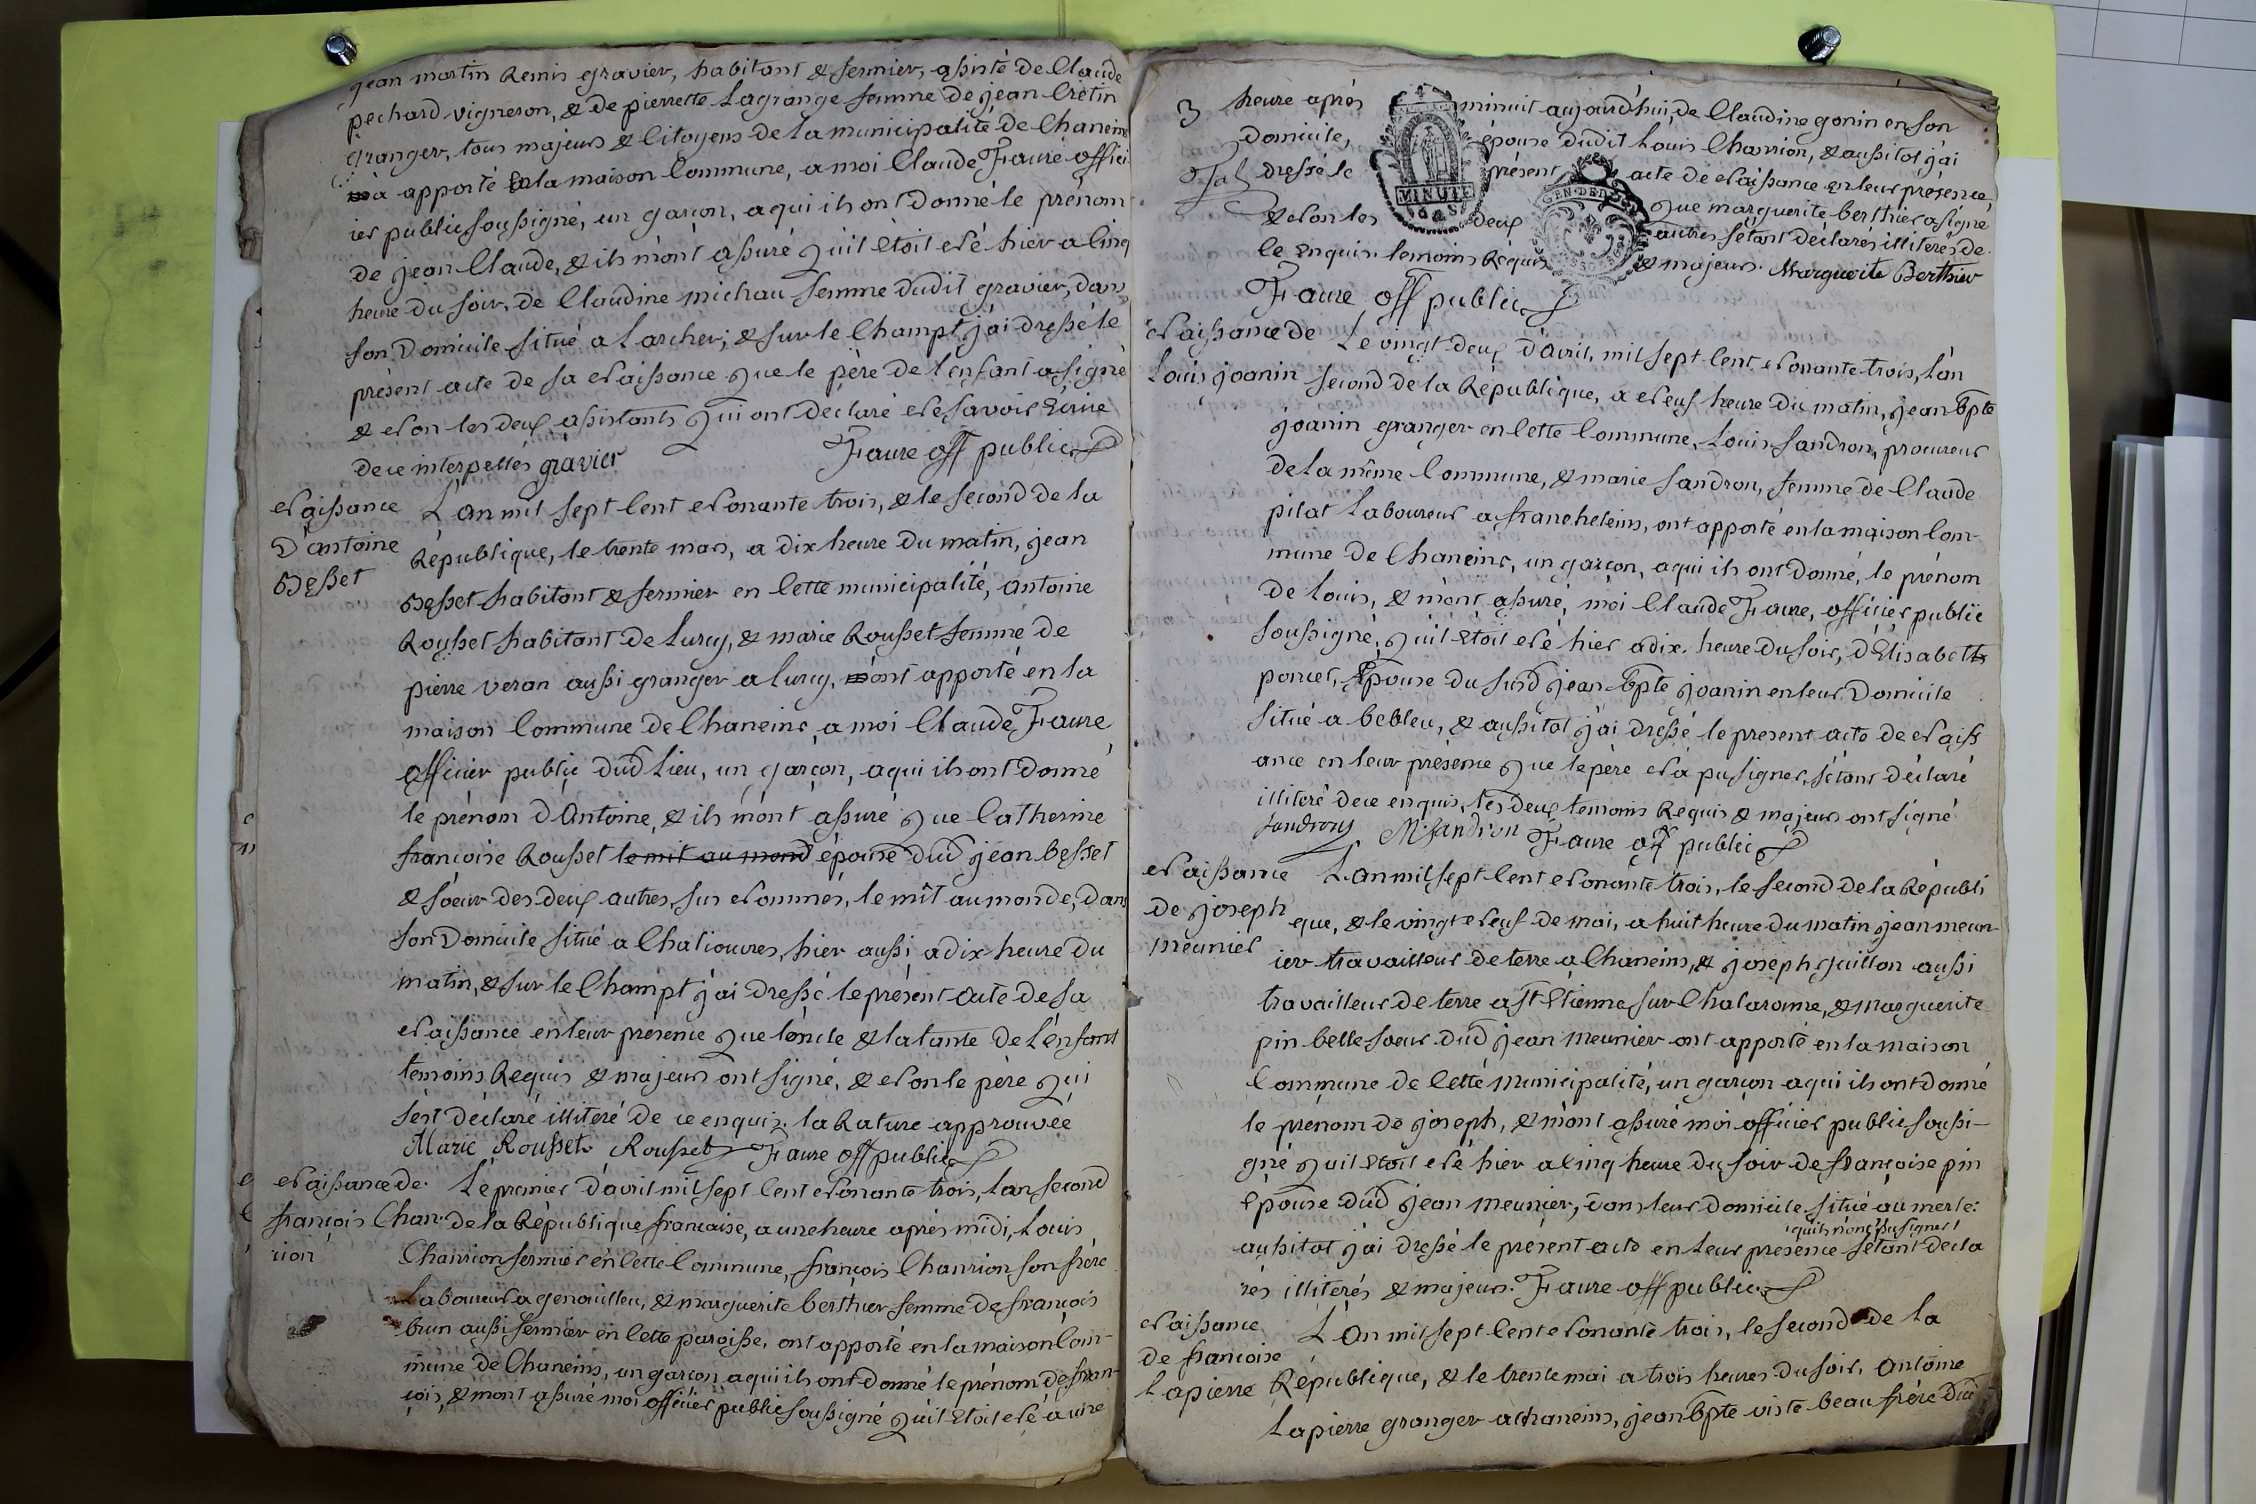 jean martin Remis gravier, habitant & fermier, assisté de Claude
pechard vigneron, & de pierrette Lagrange femme de jean Crétin
granger, tous majeurs & Citoyens de la municipalité de Chaneins
a apporté en la maison Commune, a moi Claude Faure offici
ier public soussigné, un garçon, a qui ils ont Donné le prénom
de jean Claude, & ils m'ont assuré qu'il étoit né hier a Cinq
heure du soir, de Claudine michau femme dudit gravier, dans
son Domicile situé a Larcher, & sur le Champt j'ai dressé le
présent acte de sa naissance que le père de l'enfant a signé
& non les deux assistants qui ont déclaré ne savoir Ecrire
de ce interpellés gravier Faure off public
Naissance
D'antoine
Besset
L'an mil sept Cent nonante trois, & le second de la
République, le trente mars, a dix heure du matin, jean
Besset habitant & fermier en Cette municipalité, antoine
Rousset habitant de Lurcy, & marie Rousset femme de
pierre veran aussi granger a Lurcy, m'ont apporté en la
maison Commune de Chaneins, a moi Claude Faure
officier public dud Lieu, un garçon, a qui ils ont Donné
le prénom D'Antoine, & ils m'ont assuré que Catherine
françoise Rousset le mit au mond épouse dud jean besset
& soeur des deux autres sus nommés, le mît au monde, dans
son Domicile situé a Chaliouvres, hier aussi a dix heure du
matin, & sur le Champt j'ai dressé le présent acte de sa
naissance en leur présence que l'oncle & la tante de L'enfant
temoins Requis & majeurs ont signé, & non le père qui
s'est déclaré illiteré de ce enquiz. la Rature approuvée
Marie Rousset Rousset Faure off public
Naissance de
françois Chan-
rion
Le premier d'avril mil sept Cent nonante trois, L'an second
de la République francaise, a une heure après midi, Louis
Chanrion fermier en Cette Commune, françois Chanrion son frère
Laboureur a genouilleu, & marguerite berthier femme de françois
brun aussi fermier en Cette paroisse, ont apporté en la maison Com-
mune de Chaneins, un garçon a qui ils ont donné le prénom de fran-
çois, & m'ont assuré moi officier public soussigné qu'il étoit né a une
3
heure après minuit aujourd'hui, de Claudine gonin en son
Domicile, épouse dudit Louis Chanrion, & aussitot j'ai
dressé le présent acte de naissance en leur présence,
que marguerite berthier a signé
& non les deux autres s'étant déclarés illiterés de
ce Enquis. temoins Requis & majeurs. Marguerite Berthier
Faure off public
MINUTE
Naissance de
Louis joanin
Le vingt deux D'avril, mil sept Cent nonante trois, L'an
second de la République, a neuf heure du matin, jean Bpte
joanin granger en Cette Commune, Louis sandron, procureur
de la même Commune, & marie sandron, femme de Claude
pilat Laboureur a francheleins, ont apporté en la maison Com-
mune de Chaneins, un garçon, a qui ils ont Donné, le prénom
de Louis, & m'ont assuré, moi Claude Faure, officier public
soussigné, qu'il étoit né hier a dix heure du soir, d'Elisabeth
poncet, Epouse du susd jean Bpte joanin en leur Domicile
situé a bebleu, & aussitot j'ai dressé le present acte de naiss
ance en leur présence que le père n'a pu signer, s'étant déclaré
illiteré de ce enquis, les deux temoins Requis & majeurs ont signé
sandrons M. sandron Faure off public
Naissance
de joseph
meunier
L'an mil sept Cent nonante trois, le second de la Républi
que, & le vingt neuf de mai, a huit heure du matin jean meun-
ier travailleur de terre a Chaneins, & joseph guillon aussi
travailleur de terre a st Etienne sur Chalaronne, & Marguerite
pin belle soeur dud jean meunier ont apporté en la maison
Commune de Cette Municipalité, un garçon a qui ils ont donné
le prénom de joseph, & m'ont assuré moi officier public soussi-
gné qu'il étoit né hier a Cinq heure du soir de françoise pin
Epouse dud jean meunier, dans leur domicile situé au merle:
qu'ils n'ont pu signer
aussitot j'ai dressé le présent acte en leur presence s'étant decla
rés illiterés & majeurs. Faure off public
Naissance
de francoise
Lapierre
L'an mil sept Cent nonante trois, le second de la
République, & le trente mai a trois heures du soir. antoine
Lapierre granger a chaneins, jean Bpte viste beau frère dud